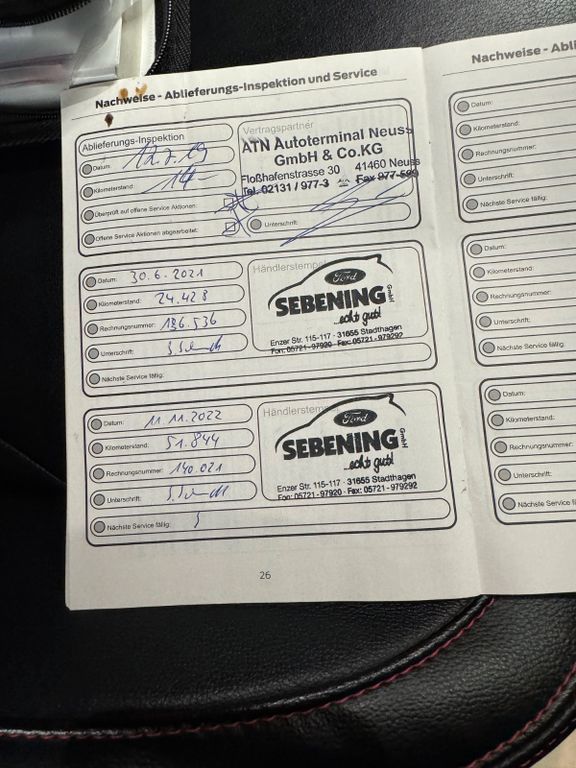 Nachweise - Ablieferungs-Inspektion und Service
Ablieferungs-Inspektion
Datum: 12.7.19
Kilometerstand: 14
Überprüft auf offene Service Aktionen:
Offene Service Aktionen abgearbeitet:
Vertragspartner
ATN Autoterminal Neuss
GmbH & Co.KG
Floßhafenstrasse 30 41460 Neuss
Tel. 02131 / 977-3 Fax 977-599
Unterschrift:
Datum: 30.6.2021
Kilometerstand: 24.428
Rechnungsnummer: 136.536
Unterschrift:
Nächste Service fällig:
Händlerstempel
Ford
SEBENING GmbH
...echt gut!
Enzer Str. 115-117 · 31655 Stadthagen
Fon: 05721-97920 · Fax: 05721-979292
Datum: 11.11.2022
Kilometerstand: 51.844
Rechnungsnummer: 140.021
Unterschrift:
Nächste Service fällig:
Händlerstem
Ford
SEBENING GmbH
...echt gut!
Enzer Str. 115-117 · 31655 Stadthagen
Fon: 05721-97920 · Fax: 05721-979292
26
Nachweise - Abli
Datum:
Kilometerstand:
Rechnungsnummer:
Unterschrift:
Nächste Service fällig:
Datum:
Kilometerstand:
Rechnungsnummer:
Unterschrift:
Nächste Service fällig:
Datum:
Kilometerstand:
Rechnungsnummer:
Unterschrift:
Nächste Service fällig: